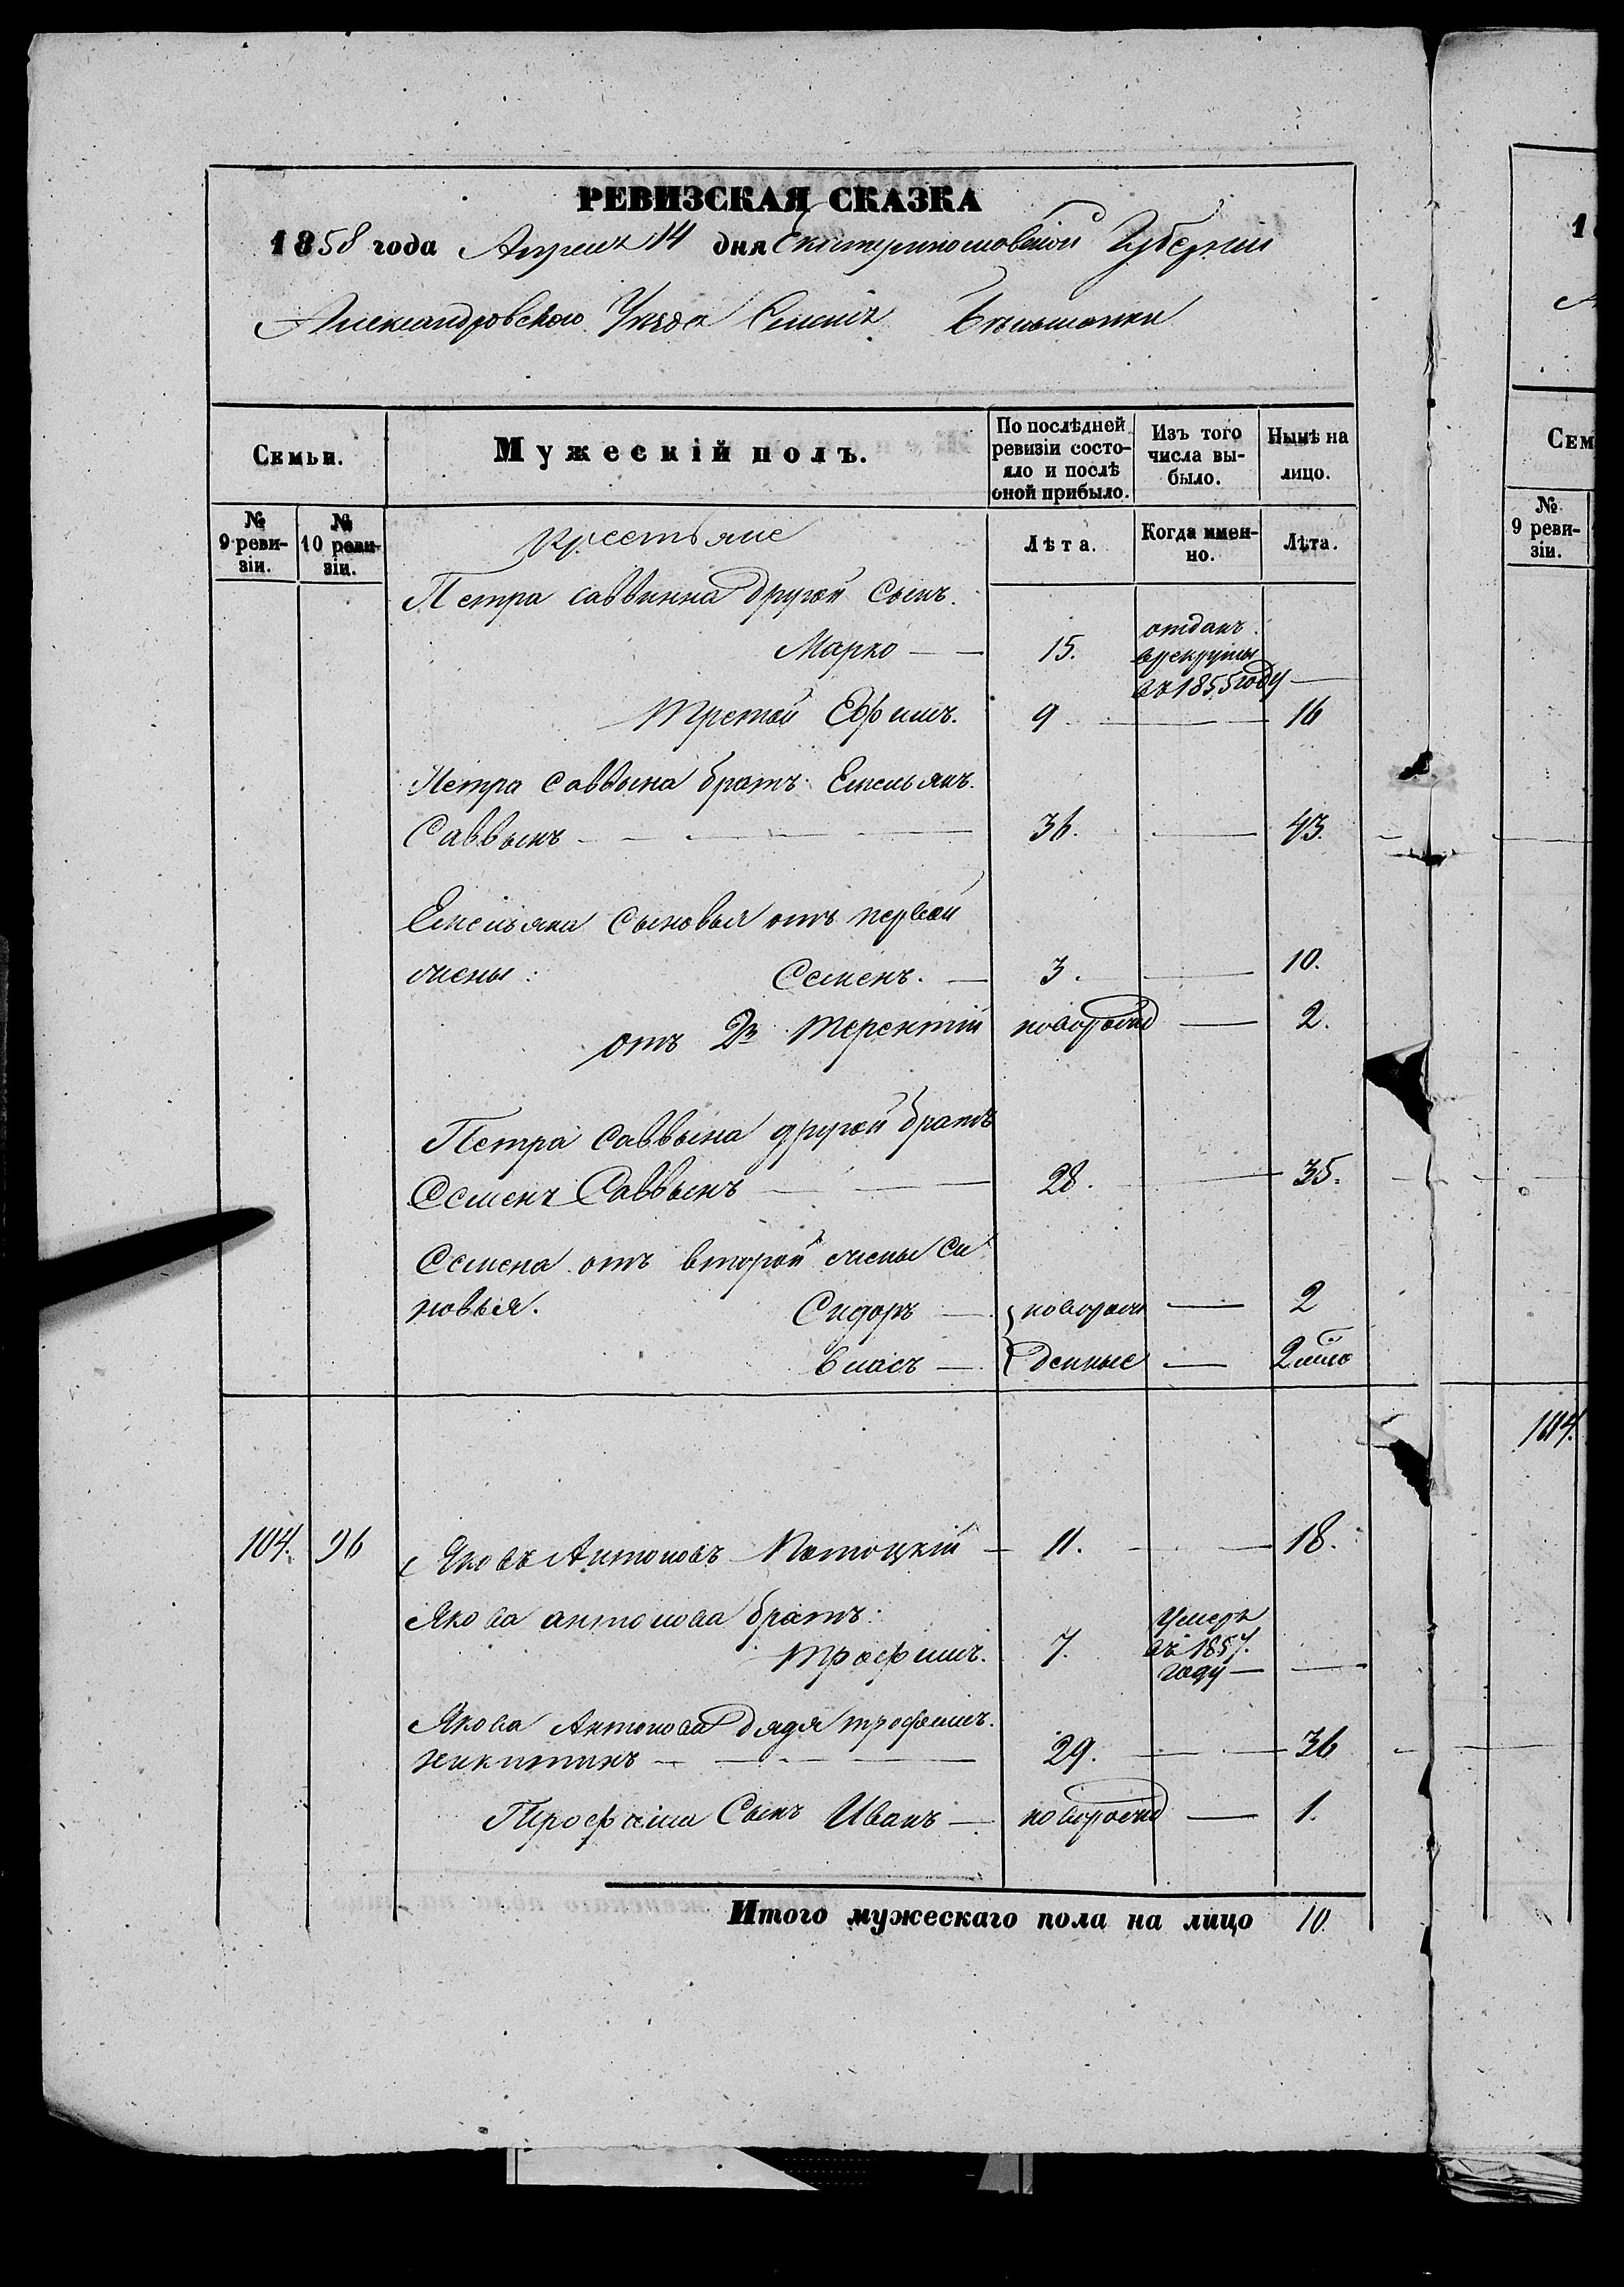 РЕВИЗСКАЯ СКАЗКА
1858 года Апреля 14 дня Екатеринославской Губерніи
Александровского Уѣзда Селенія
Семьи.
Мужескій полъ.
По послѣдней ревизіи состояло и послѣ оной прибыло.
Изъ того числа выбыло.
Нынѣ на лицо.
№ 9 ревизіи.
№ 10 ревизіи.
Лѣта.
Когда именно.
Лѣта.
Крестьяне
Петра саввина другой Сынъ.
Марко — 15. отданъ
врекруты
въ 1855 году —
третій Ефимъ. 9 — 16
Петра саввына братъ Емельянъ.
Саввынъ — 36. — 43.
Емельяна Сыновья отъ первой
жены: Семенъ. — 3. — 10.
отъ 2й Терентій новорожд — 2.
Петра Саввына другой братъ
Семенъ Саввынъ — 28. — 35.
Семена отъ второй жены Си
новья. Сидоръ — новорож — 2
Власъ — денные — 2
104. 96 Яковъ Антоновъ Потоцкій — 11. — 18.
Якова антонова братъ:
Трофимъ. 7. Умеръ
въ 1857.
году — —
Якова Антонова дядя трофимъ.
никитинъ — 29. — 36
Трофима Сынъ Иванъ — новорожд — 1.
Итого мужескаго пола на лицо 10.
1
Сем
№ 9 ревизіи.
104.